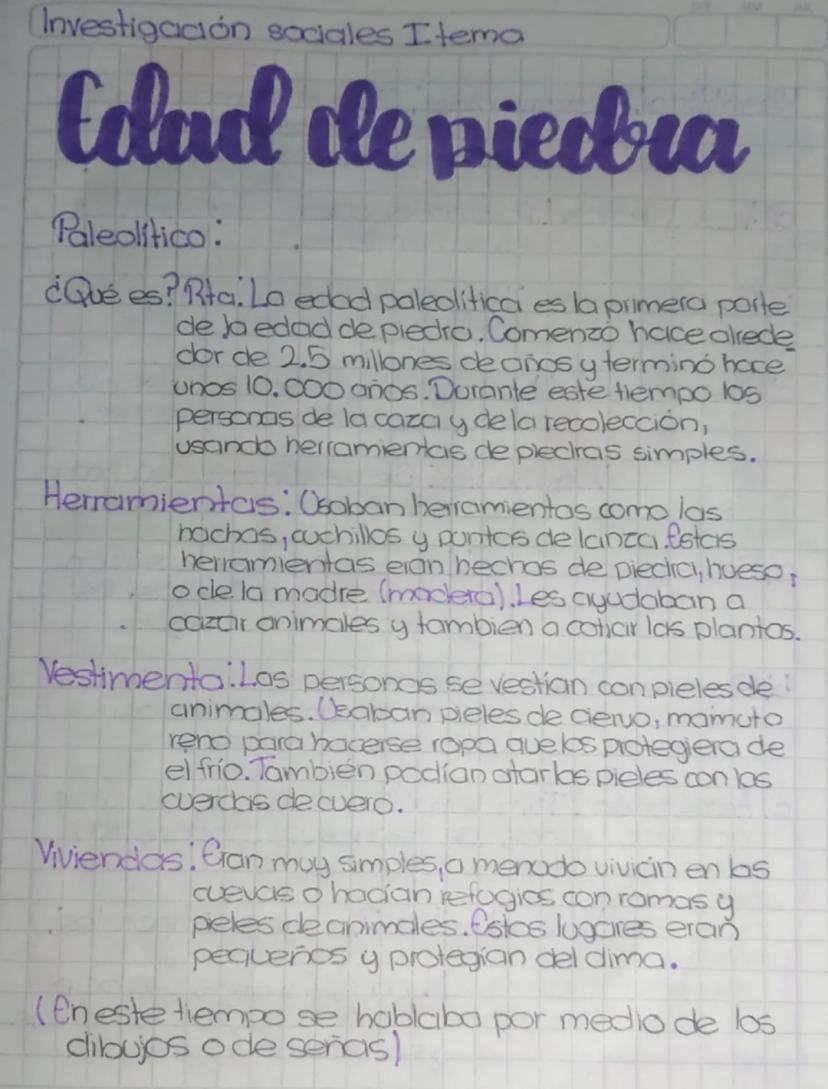 Investigación sociales I tema
Edad de piedra
Paleolítico:
¿Qué es? Rta: La edad paleolítica es la primera parte
de la edad de piedra. Comenzó hace alrede
dor de 2.5 millones de años y terminó hace
unos 10.000 años. Durante este tiempo los
personas de la caza y de la recolección,
usando herramientas de piedras simples.
Herramientas: Usaban herramientas como las
hachas, cuchillos y puntas de lanza. Estas
herramientas eran hechas de piedra, hueso,
o de la madre (madera). Les ayudaban a
cazar animales y tambien a cortar las plantas.
Vestimenta: Las personas se vestían con pieles de
animales. Usaban pieles de ciervo, mamut o
reno para hacerse ropa que los protegiera de
el frío. También podían atar las pieles con las
cuerdas de cuero.
Viviendas: Eran muy simples, a menudo vivían en las
cuevas o hacían refugios con ramas y
pieles de animales. Estos lugares eran
pequeños y protegían del clima.
(En este tiempo se hablaba por medio de los
dibujos o de señas)